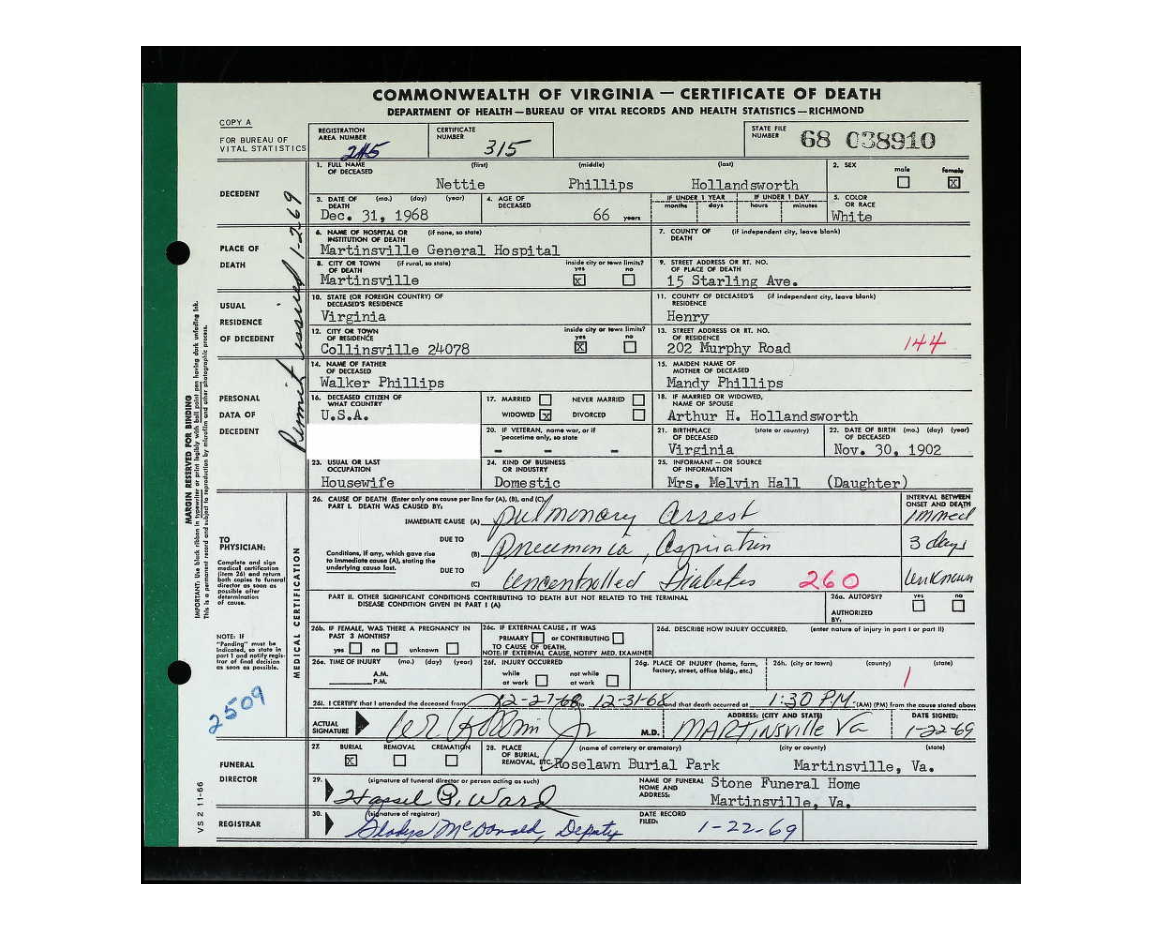 COMMONWEALTH OF VIRGINIA — CERTIFICATE OF DEATH
DEPARTMENT OF HEALTH—BUREAU OF VITAL RECORDS AND HEALTH STATISTICS—RICHMOND
COPY A
FOR BUREAU OF VITAL STATISTICS
REGISTRATION AREA NUMBER 245
CERTIFICATE NUMBER 315
STATE FILE NUMBER 68 038910
DECEDENT
1. FULL NAME OF DECEASED (first) (middle) (last)
Nettie Phillips Hollandsworth
2. SEX male female X
3. DATE OF DEATH (mo.) (day) (year)
Dec. 31, 1968
4. AGE OF DECEASED 66 years
IF UNDER 1 YEAR months days
IF UNDER 1 DAY hours minutes
5. COLOR OR RACE
White
PLACE OF DEATH
6. NAME OF HOSPITAL OR INSTITUTION OF DEATH (if none, so state)
Martinsville General Hospital
7. COUNTY OF DEATH (if independent city, leave blank)
8. CITY OR TOWN OF DEATH (if rural, so state)
Martinsville
inside city or town limits? yes no X
9. STREET ADDRESS OR RT. NO. OF PLACE OF DEATH
15 Starling Ave.
USUAL RESIDENCE OF DECEDENT
10. STATE (OR FOREIGN COUNTRY) OF DECEASED'S RESIDENCE
Virginia
11. COUNTY OF DECEASED'S RESIDENCE (if independent city, leave blank)
Henry
12. CITY OR TOWN OF RESIDENCE
Collinsville 24078
inside city or town limits? yes no X
13. STREET ADDRESS OR RT. NO. OF RESIDENCE
202 Murphy Road
144
PERSONAL DATA OF DECEDENT
14. NAME OF FATHER OF DECEASED
Walker Phillips
15. MAIDEN NAME OF MOTHER OF DECEASED
Mandy Phillips
16. DECEASED CITIZEN OF WHAT COUNTRY
U.S.A.
17. MARRIED NEVER MARRIED
WIDOWED X DIVORCED
18. IF MARRIED OR WIDOWED, NAME OF SPOUSE
Arthur H. Hollandsworth
20. IF VETERAN, name war, or if peacetime only, so state
- - -
21. BIRTHPLACE OF DECEASED (state or country)
Virginia
22. DATE OF BIRTH OF DECEASED (mo.) (day) (year)
Nov. 30, 1902
23. USUAL OR LAST OCCUPATION
Housewife
24. KIND OF BUSINESS OR INDUSTRY
Domestic
25. INFORMANT — OR SOURCE OF INFORMATION
Mrs. Melvin Hall (Daughter)
MEDICAL CERTIFICATION
26. CAUSE OF DEATH (Enter only one cause per line for (A), (B), and (C).)
PART I. DEATH WAS CAUSED BY:
INTERVAL BETWEEN ONSET AND DEATH
IMMEDIATE CAUSE (A) pulmonary arrest immed
DUE TO
(B) Pneumonia, Aspiration 3 days
Conditions, if any, which gave rise to immediate cause (A), stating the underlying cause last.
DUE TO
(C) Uncontrolled Diabetes 260 Unknown
TO PHYSICIAN:
Complete and sign medical certification (item 26) and return both copies to funeral director as soon as possible after determination of cause.
PART II. OTHER SIGNIFICANT CONDITIONS CONTRIBUTING TO DEATH BUT NOT RELATED TO THE TERMINAL DISEASE CONDITION GIVEN IN PART I (A)
26a. AUTOPSY? yes no
AUTHORIZED BY:
NOTE: IF "Pending" must be indicated, so state in part I and notify registrar of final decision as soon as possible.
26b. IF FEMALE, WAS THERE A PREGNANCY IN PAST 3 MONTHS?
yes no unknown
26c. IF EXTERNAL CAUSE, IT WAS
PRIMARY or CONTRIBUTING
TO CAUSE OF DEATH.
NOTE: IF EXTERNAL CAUSE, NOTIFY MED. EXAMINER
26d. DESCRIBE HOW INJURY OCCURRED. (enter nature of injury in part I or part II)
26e. TIME OF INJURY (mo.) (day) (year)
A.M.
P.M.
26f. INJURY OCCURRED
while at work not while at work
26g. PLACE OF INJURY (home, farm, factory, street, office bldg., etc.)
26h. (city or town) (county) (state)
1
2509
26i. I CERTIFY that I attended the deceased from 12-27-68 to 12-31-68 and that death occurred at 1:30 PM (AM) (PM) from the cause stated above
ACTUAL SIGNATURE
M.D.
ADDRESS: (CITY AND STATE)
MARTINSVILLE Va
DATE SIGNED:
1-22-69
FUNERAL DIRECTOR
27. BURIAL REMOVAL CREMATION
X
28. PLACE OF BURIAL, REMOVAL, ETC. (name of cemetery or crematory) (city or county) (state)
Roselawn Burial Park Martinsville, Va.
29. (signature of funeral director or person acting as such)
Hassel P. Ward
NAME OF FUNERAL HOME AND ADDRESS:
Stone Funeral Home
Martinsville, Va.
REGISTRAR
30. (signature of registrar)
Gladys McDonald, Deputy
DATE RECORD FILED:
1-22-69
VS 2 11-66
MARGIN RESERVED FOR BINDING
IMPORTANT: Use black ribbon in typewriter or print legibly with ball point pen having dark unfading ink.
This is a permanent record and subject to reproduction by microfilm and other photographic process.
Permit issued 1-2-69